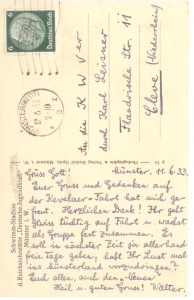 6
Deutsches Reich
12.6.33
An die K W Ver
durch Karl Leisner
Flandrische Str. 11
Cleve (Niederrhein)
Schwimm-Stadion
Münster i. W.
Gruss Gott! Münster. 11.6.33.
Euer Gruss und Gedanken auf
der Kevelaer-Fahrt hat mich ge-
freut. Herzlichen Dank! Ihr geht
jetzt tüchtig auf Fahrt u. wachst
als Gruppe fest zusammen. Es
soll in nächster Zeit ja allerhand
freie Tage geben, habt Ihr Lust mal
ins Münsterland vorzudringen?
Euch allen, auch den "Neuen"
Heil u. guten Gruss! Walter.